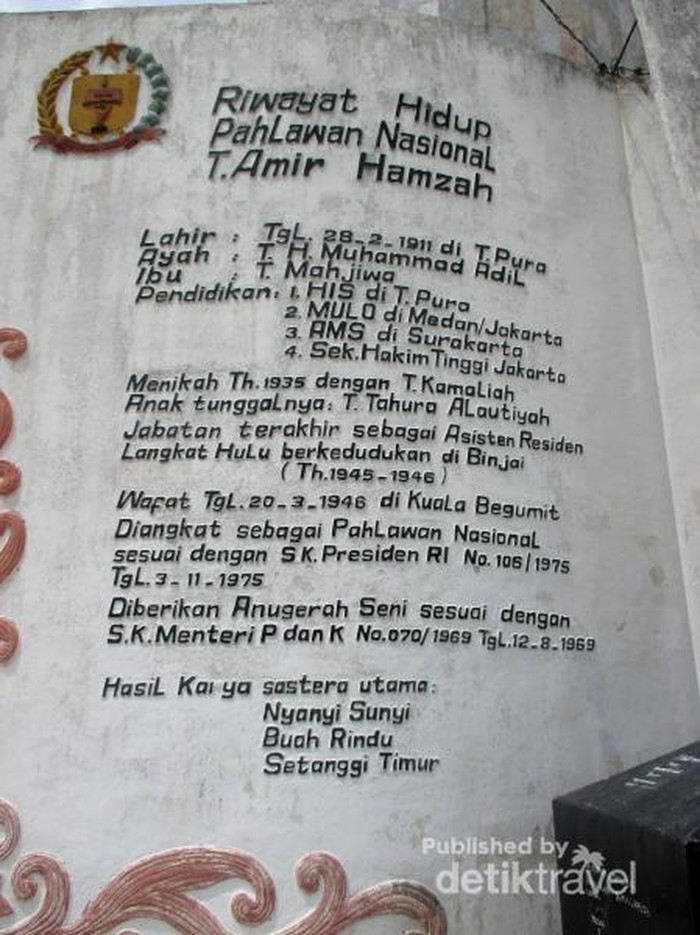 Riwayat Hidup
Pahlawan Nasional
T. Amir Hamzah
Lahir : Tgl. 28-2-1911 di T. Pura
Ayah : T. H. Muhammad Adil
Ibu : T. Mahjiwa
Pendidikan: 1. HIS di T. Pura
2. MULO di Medan/Jakarta
3. AMS di Surakarta
4. Sek. Hakim Tinggi Jakarta
Menikah Th. 1935 dengan T. Kamaliah
Anak tunggalnya: T. Tahura Alautiyah
Jabatan terakhir sebagai Asisten Residen
Langkat Hulu berkedudukan di Binjai
(Th. 1945-1946)
Wafat Tgl. 20-3-1946 di Kuala Begumit
Diangkat sebagai Pahlawan Nasional
sesuai dengan S K. Presiden RI No. 106/1975
Tgl. 3-11-1975
Diberikan Anugerah Seni sesuai dengan
S.K. Menteri P dan K No. 070/1969 Tgl. 12-8-1969
Hasil Karya sastera utama:
Nyanyi Sunyi
Buah Rindu
Setanggi Timur
Published by
detiktravel